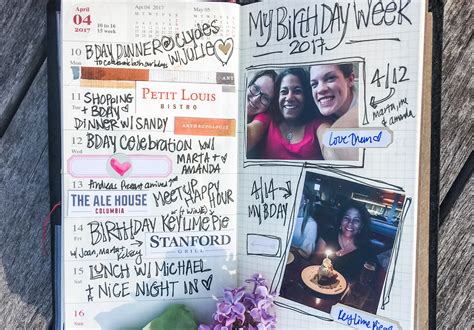 04
2017
10 to 16
15 week
Apr 04 2017
May 05
10
BDAY DINNER @ Clydes
to celebrate both our bdays
W/ Julie
11
SHOPPING
+ BDAY
DINNER W/ SANDY
PETIT LOUIS
BISTRO
ANTHROPOLOGIE
12
BDAY Celebration W/
MARTA +
AMANDA
13
Andreas Present arrived
THE ALE HOUSE
COLUMBIA
MEETUP HAPPY
HOUR
(+ WINE)
14
BIRTHDAY KEYLIME PIE
W/ Joan, Marta +
Kelsey
STANFORD
GRILL
15
LUNCH W/ MICHAEL
+ NICE NIGHT IN
16
MY BIRTHDAY WEEK
2017
4/12
marta, me
& amanda
Love Them
4/14
MY BDAY
Key lime Pie